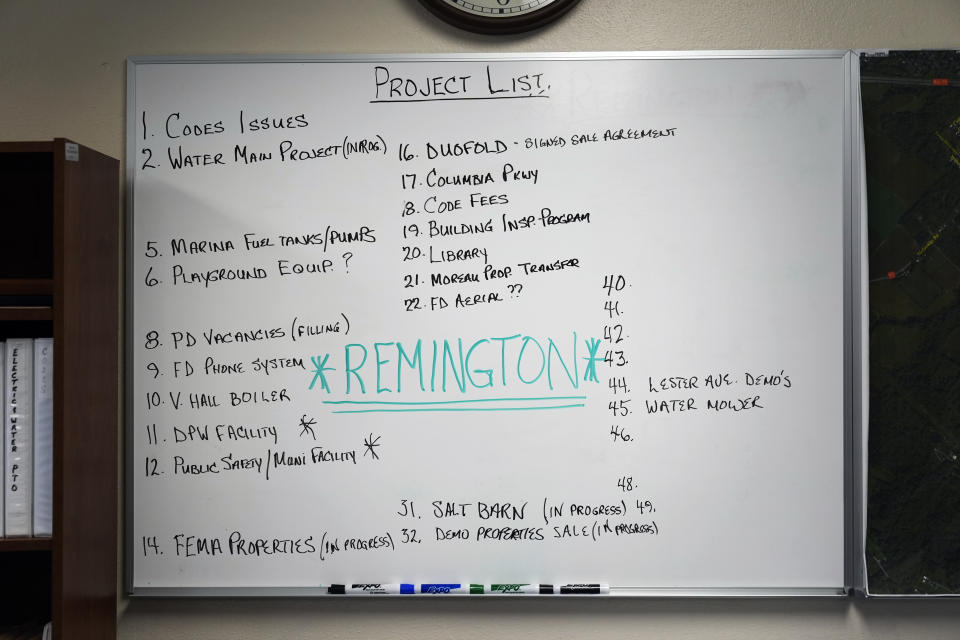 PROJECT LIST.
1. CODES ISSUES
2. WATER MAIN PROJECT (IN PROG.)
5. MARINA FUEL TANKS/PUMPS
6. PLAYGROUND EQUIP. ?
8. PD VACANCIES (FILLING)
9. FD PHONE SYSTEM
10. V. HALL BOILER
11. DPW FACILITY *
12. PUBLIC SAFETY/MUNI FACILITY *
14. FEMA PROPERTIES (IN PROGRESS)
16. DUOFOLD - SIGNED SALE AGREEMENT
17. COLUMBIA PKWY
18. CODE FEES
19. BUILDING INSP. PROGRAM
20. LIBRARY
21. MOREAU PROP. TRANSFER
22. FD AERIAL ??
*REMINGTON*
31. SALT BARN (IN PROGRESS)
32. DEMO PROPERTIES SALE (IN PROGRESS)
40.
41.
42.
43.
44. LESTER AVE. DEMO'S
45. WATER MOWER
46.
48.
49.
ELECTRIC & WATER PTO
EXPO
EXPO
EXPO